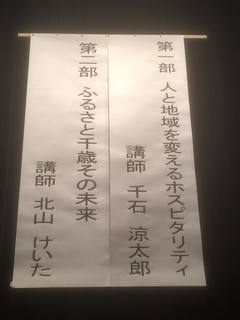 第一部 人と地域を変えるホスピタリティ
講師 千石 涼太郎
第二部 ふるさと千歳その未来
講師 北山 けいた